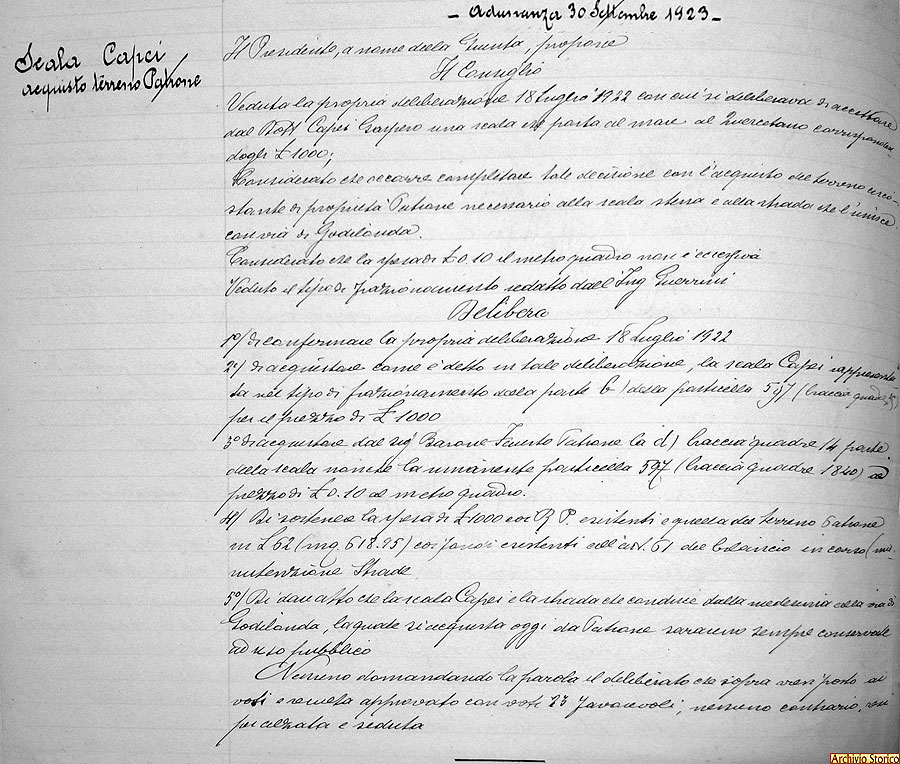 - Adunanza 30 Settembre 1923 -
Scala Capei
acquisto terreno Patrone
Il Presidente, a nome della Giunta, propone
Il Consiglio
Veduta la propria deliberazione 18 Luglio 1922 con cui si deliberava di accettare
dal Dott Capei Gaspero una scala che porta al mare al Quercetano corrisponden
dogli £ 1000;
Considerato che occorre completare tale decisione con l'acquisto del terreno circo-
stante di proprietà Patrone necessario alla scala stessa e alla strada che l'unisce
con via di Godilonda.
Considerato che la spesa di £ 0.10 il metro quadro non è eccessiva
Veduto il tipo di frazionamento redatto dall'Ing Guerrini
Delibera
1º/ di confermare la propria deliberazione 18 Luglio 1922
2º/ di acquistare come è detto in tale deliberazione, la scala Capei rappresenta
ta nel tipo di frazionamento della parte b) della particella 597 (braccia quadre
per il prezzo di £ 1000
3º di acquistare dal sig Barone Fausto Patrone la d) braccia quadre 14 parte
della scala nonché la rimanente particella 597 (braccia quadre 1840) al
prezzo di £ 0.10 al metro quadro.
4º/ Di sostenere la spesa di £ 1000 coi R. P. esistenti e quella del terreno Patrone
in L 62 (mq. 618.95) coi fondi esistenti all'art. 61 del bilancio in corso (ma-
nutenzione Strade
5º/ Di dare atto che la scala Capei e la strada che conduce dalla medesima alla via di
Godilonda, la quale si acquista oggi da Patrone saranno sempre conservate
ad uso pubblico
Nessuno domandando la parola il deliberato che sopra vien posto ai
voti e resulta approvato con voti 23 favorevoli, nessuno contrario, resi
per alzata e seduta
Archivio Storico